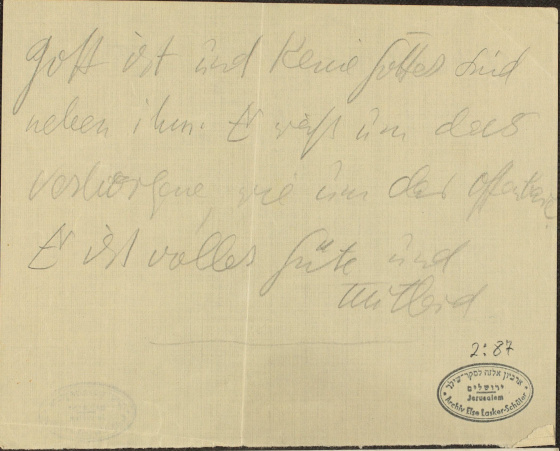 Gott ist und keine Götter sind
neben ihm. Er weiß um das
verborgene, wie um das offenbare.
Er ist voller Güte und
Mitleid
2:87
ארכיון אלזה לסקר-שילר
ירושלים
Jerusalem
Archiv Else Lasker-Schüler